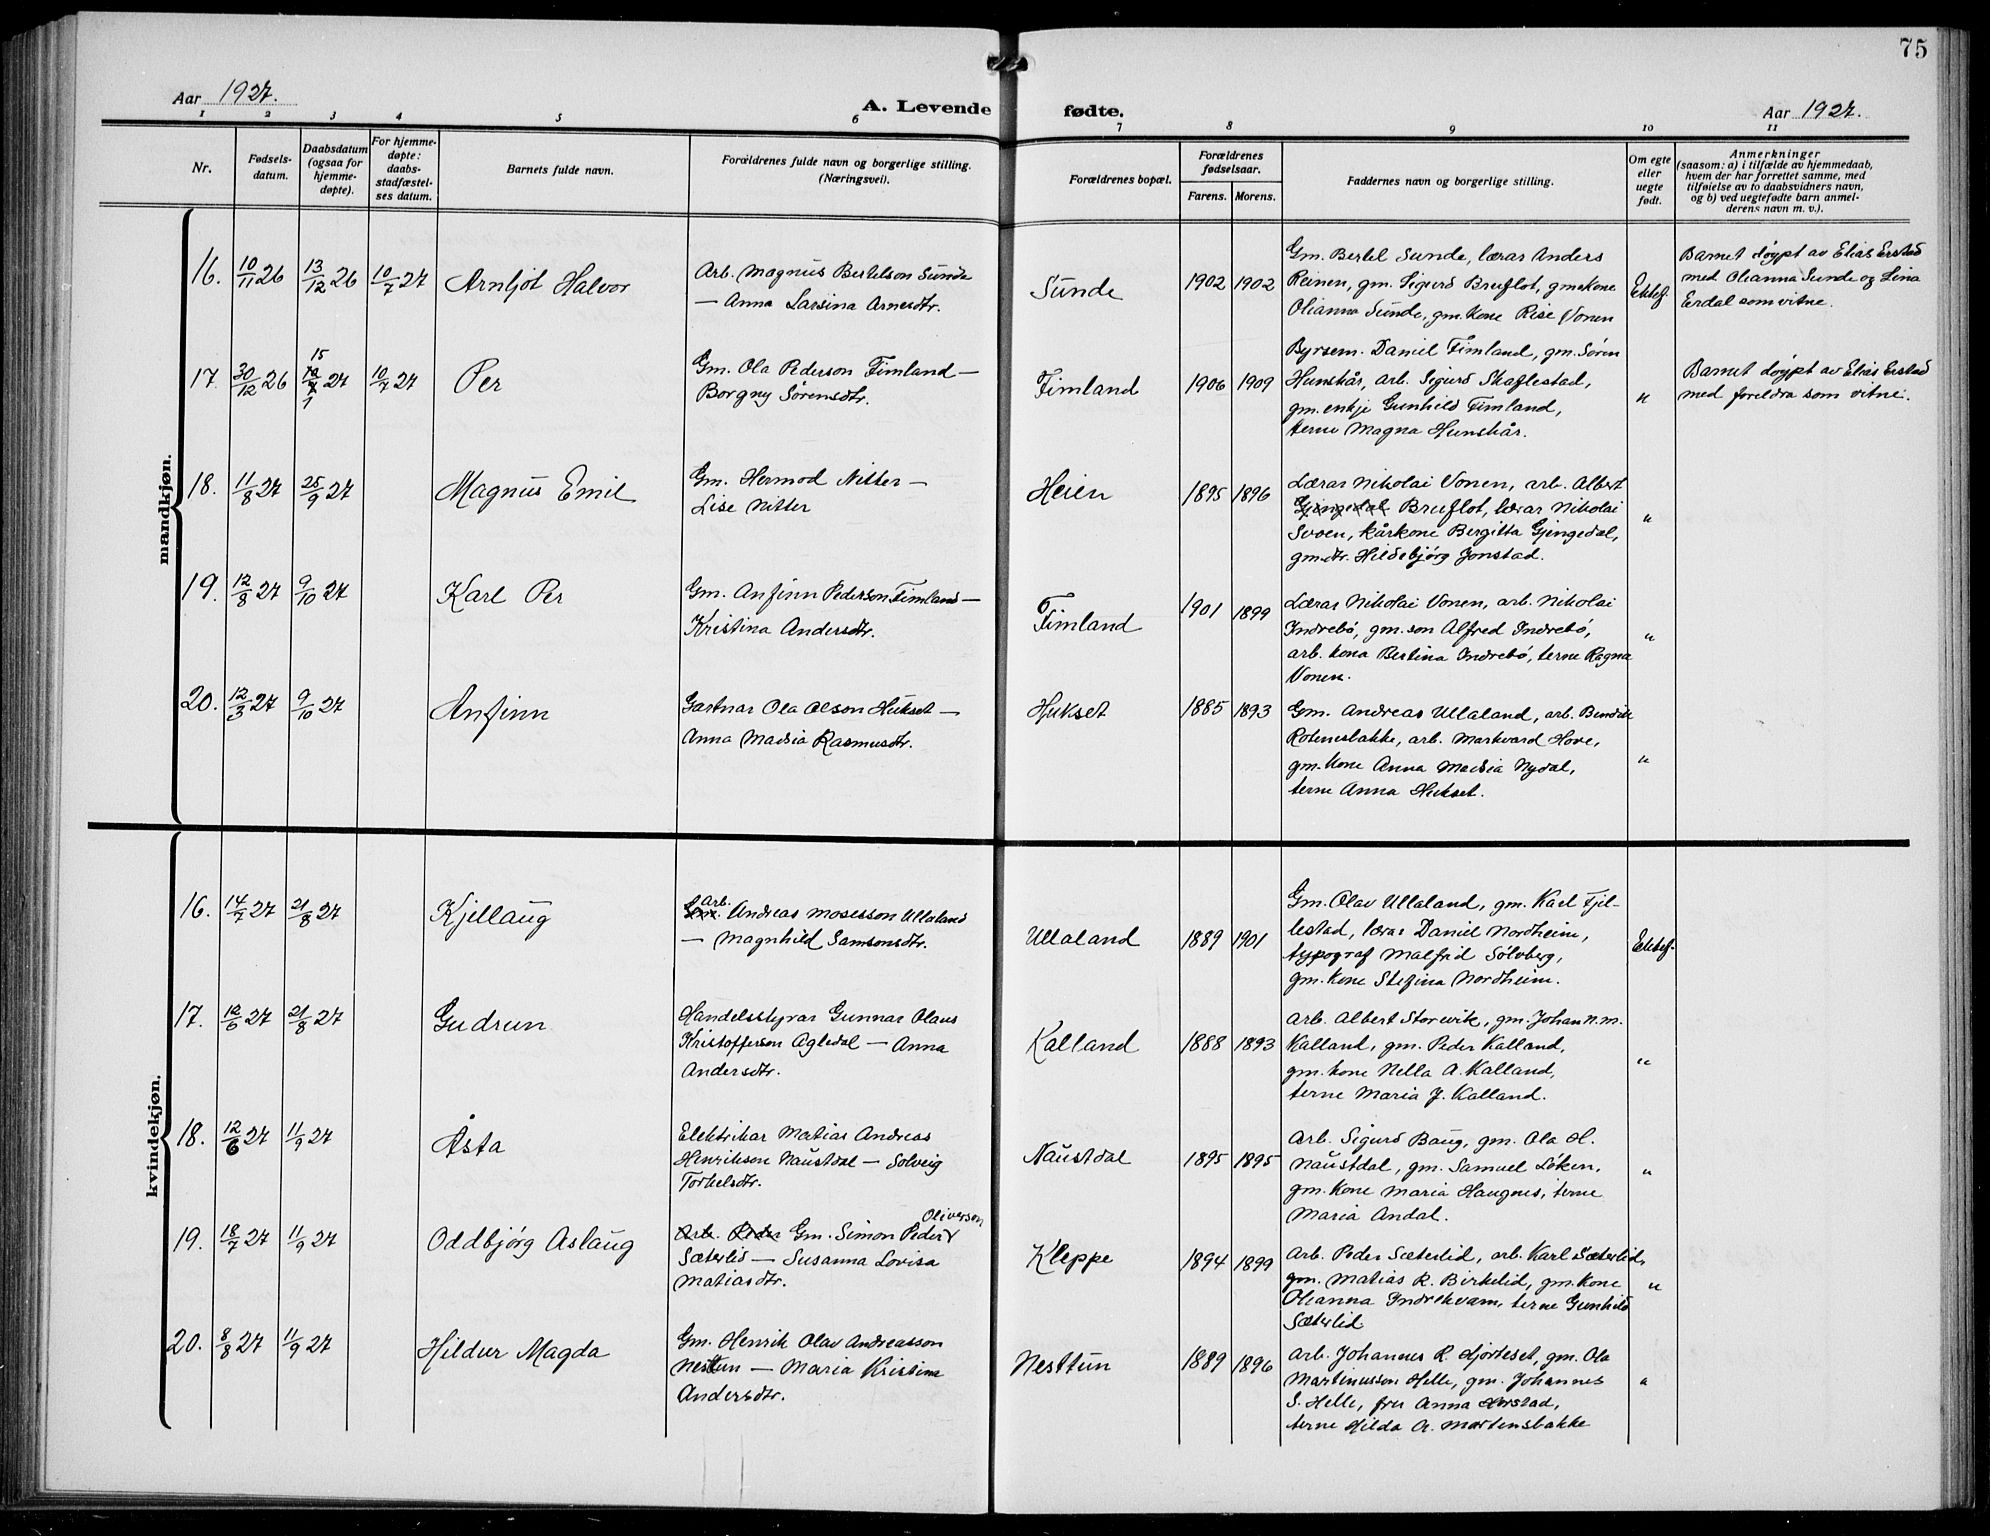 75
Aar 1927.
A. Levende fødte.
Aar 1927.
1 2 3 4 5 6 7 8 9 10 11
Nr.
Fødsels-
datum.
Daabsdatum
(ogsaa for
hjemme-
døpte).
For hjemme-
døpte:
daabs-
stadfæstel-
ses datum.
Barnets fulde navn.
Forældrenes fulde navn og borgerlige stilling.
(Næringsvei).
Forældrenes bopæl.
Forældrenes
fødselsaar.
Farens. Morens.
Faddernes navn og borgerlige stilling.
Om egte
eller
uegte
født.
Anmerkninger
(saasom: a) i tilfælde av hjemmedaab,
hvem der har forrettet samme, med
tilføielse av to daabsvidners navn,
og b) ved uegtefødte barn anmel-
derens navn m. v.).
mandkjøn.
16. 10/11 26 13/12 26 10/7 27 Arnljot Halvor
Arb. Magnus Bertelson Sunde
— Anna Larsina Arnesdtr.
Sunde 1902 1902
Gm. Bertel Sunde, lærar Anders
Reinen, gm. Sigurd Bruflot, gmskone
Olianna Sunde, gm. kone Rise Vonen
Ektef.
Barnet døypt av Elias Erstad
med Olianna Sunde og Lina
Erdal som vitne.
17. 30/12 26 15/1 27 10/7 27 Per
Gm. Ola Pederson Fimland —
Borgny Sørensdtr.
Fimland 1906 1909
Byrsem. Daniel Fimland, gm. Søren
Hunskår, arb. Sigurd Skaflestad,
gm. enkje Gunhild Fimland,
terne Magna Hunskår.
"
Barnet døypt av Elias Erstad
med foreldra som vitne.
18. 11/8 27 25/9 27 Magnus Emil
Gm. Hermod Nitter —
Lise Nitter
Heien 1895 1896
Lærar Nikolai Vonen, arb. Albert
Gjengedal Bruflot, lærar Nikolai
Svoen, kårkone Bergitta Gjengedal,
gmdtr. Hildebjørg Jonstad.
"
19. 12/8 27 9/10 27 Karl Per
Gm. Anfinn Pederson Fimland —
Kristina Andersdtr.
Fimland 1901 1899
Lærar Nikolai Vonen, arb. Nikolai
Indrebø, gm. son Alfred Indrebø,
arb. kona Bertina Indrebø, terne Ragna
Vonen.
"
20. 12/3 27 9/10 27 Anfinn
Gartnar Ola Olson Hukset —
Anna Madsia Rasmusdtr.
Hukset 1885 1893
Gm. Andreas Ullaland, arb. Bendik
Rotenesbakke, arb. Markvard Hove,
gm. kone Anna Madsia Nydal,
terne Anna Hukset.
"
kvindekjøn.
16. 14/7 27 21/8 27 Kjellaug
Arb. Andreas Mosesson Ullaland
— Magnhild Samsonsdtr.
Ullaland 1889 1901
Gm. Olav Ullaland, gm. Karl Fjel-
lestad, lærar Daniel Nordheim,
typograf Malfrid Sølvberg,
gm. kone Stefina Nordheim.
Ektef.
17. 12/6 27 21/8 27 Gudrun
Handelsstyrar Gunnar Olaus
Kristofferson Agledal — Anna
Andersdtr.
Kalland 1888 1893
Arb. Albert Storevik, gm. Johan N. M.
Kalland, gm. Peder Kalland,
gm. kone Nella A. Kalland,
terne Maria J. Kalland.
"
18. 12/6 27 11/9 27 Åsta
Elektrikar Matias Andreas
Henrikson Naustdal — Solveig
Torkelsdtr.
Naustdal 1895 1895
Arb. Sigurd Baug, gm. Ola H.
Naustdal, gm. Samuel Løken,
gm. kone Maria Haugnes, terne
Maria Andal.
"
19. 18/7 27 11/9 27 Oddbjørg Aslaug
Oliverson
Arb. Peder Gm. Simon Peder
Sæterlid — Susanna Lovisa
Matiasdtr.
Kleppe 1894 1899
Arb. Peder Sæterlid, arb. Karl Sæterlid,
gm. Matias R. Birkelid, gm. kone
Olianna Indrekvam, terne Gunhild
Sæterlid
"
20. 8/8 27 11/9 27 Hildur Magda
Gm. Henrik Olav Andreasson
Nesttun — Maria Kristina
Andersdtr.
Nesttun 1889 1896
Arb. Johannes R. Hjorteset, gm. Ola
Martinusson Helle, gm. Johannes
S. Helle, fru Anna
terne Hilda A. Mortensbakke
"